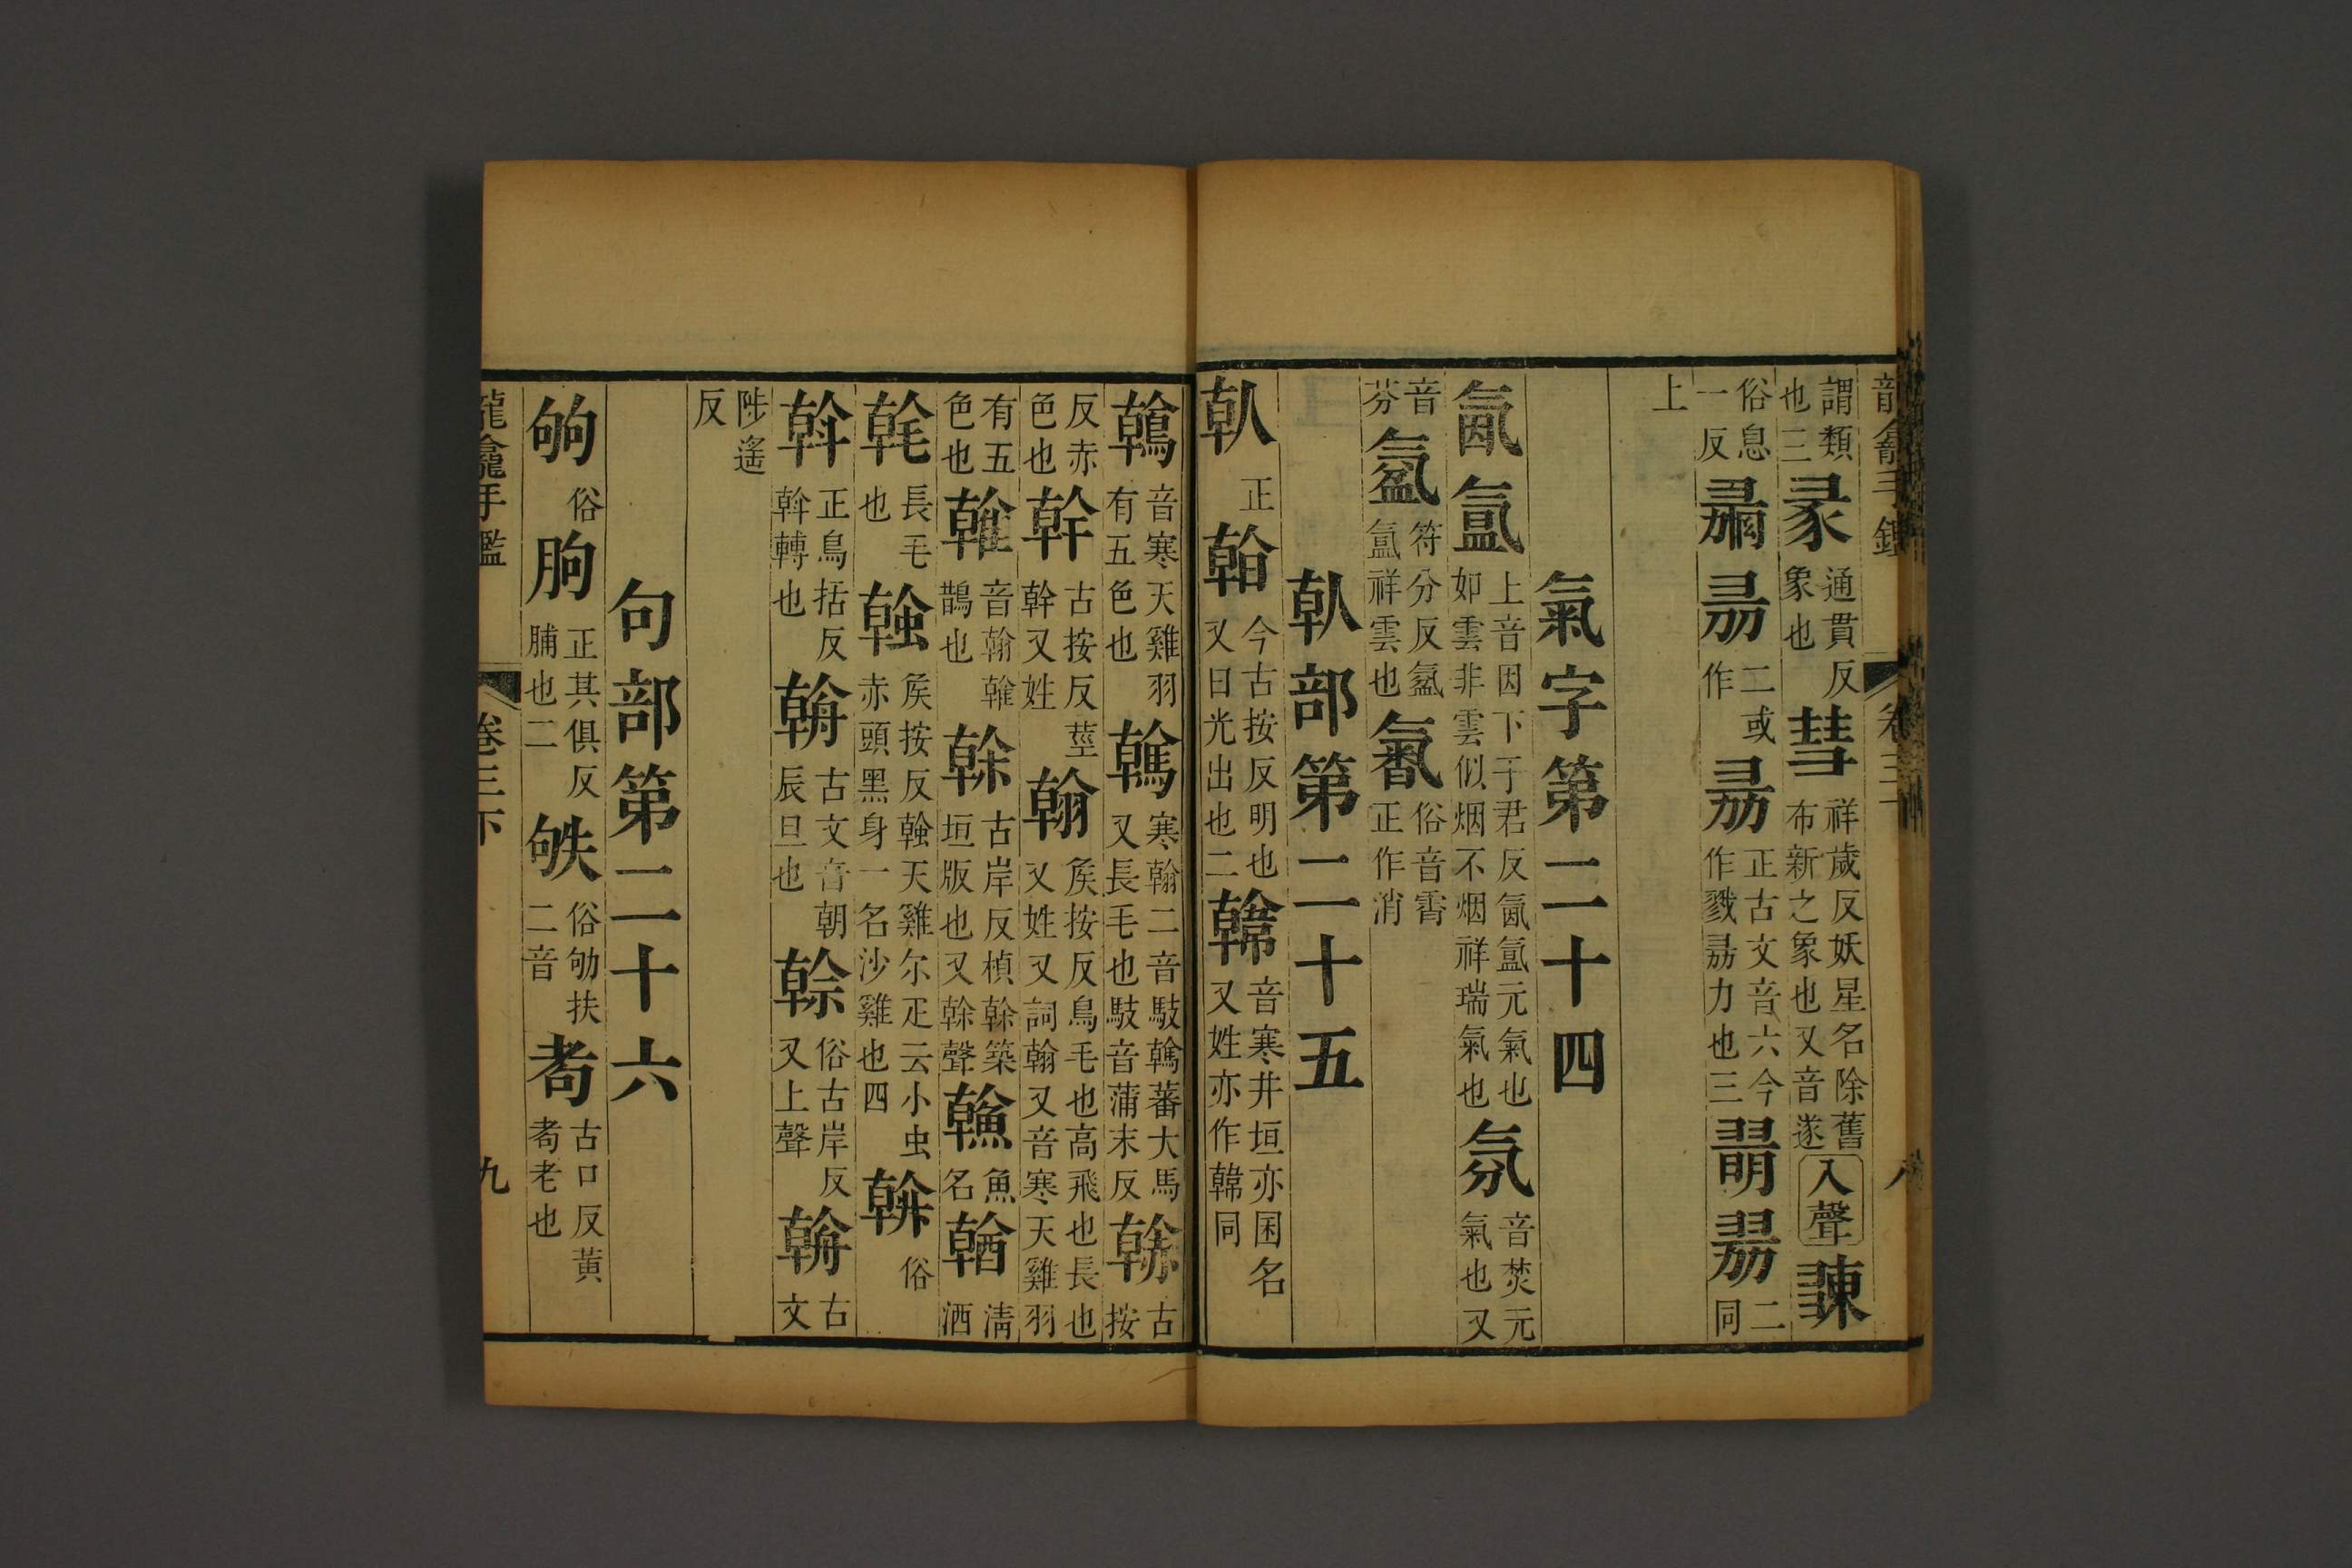 龍龕手鑑 卷三下 八
謂類也三彖通貫反象也彗祥歲反妖星名除舊布新之象也又音遂入聲
俗息一反二或作正古文音六今作戮勠力也三二同
上
氣字第二十四
氤氳上音因下于君反氤氳元氣也如雲非雲似烟不烟祥瑞氣也氛音焚元氣也又
音芬氳符分反氳氳祥雲也俗音霄正作消
倝部第二十五
倝正今古按反明也又日光出也二韓音寒井垣亦囷名又姓亦作韓同
鶾音寒天雞羽有五色也寒翰二音駊蕃大馬又長毛也駊音蒲末反古按
反赤色也幹古按反莖幹又姓翰矦按反鳥毛也高飛也長也又姓又詞翰又音寒天雞羽
有五色也雗音翰雗鵲也榦古岸反楨榦築垣版也又榦聲魚名淸洒
長毛也矦按反天雞尔疋云小虫赤頭黑身一名沙雞也四俗
斡正烏括反斡轉也古文音朝辰旦也俗古岸反又上聲古文
陟遙反
句部第二十六
俗朐正其俱反脯也二俗劬扶二音耇古口反黃耇老也
龍龕手鑑 卷三下 九